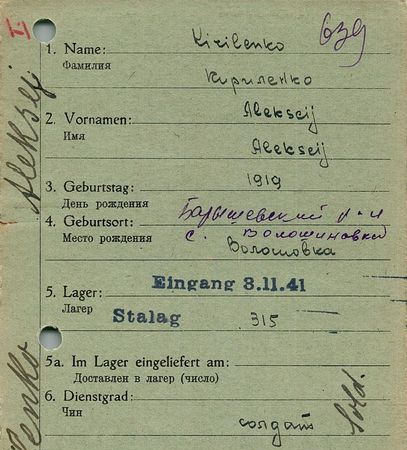 I
639
1. Name: Kirilenko
Фамилия Кириленко
2. Vornamen: Aleksej
Имя Aleksej
3. Geburtstag: 1919
День рождения
4. Geburtsort: Барышевский р-н
Место рождения с. Волошиновка
Волошовка
Eingang 3.11.41
5. Lager: Stalag 315
Лагер
5a. Im Lager eingeliefert am:
Доставлен в лагер (число)
6. Dienstgrad:
Чин
Sold.
Aleksej